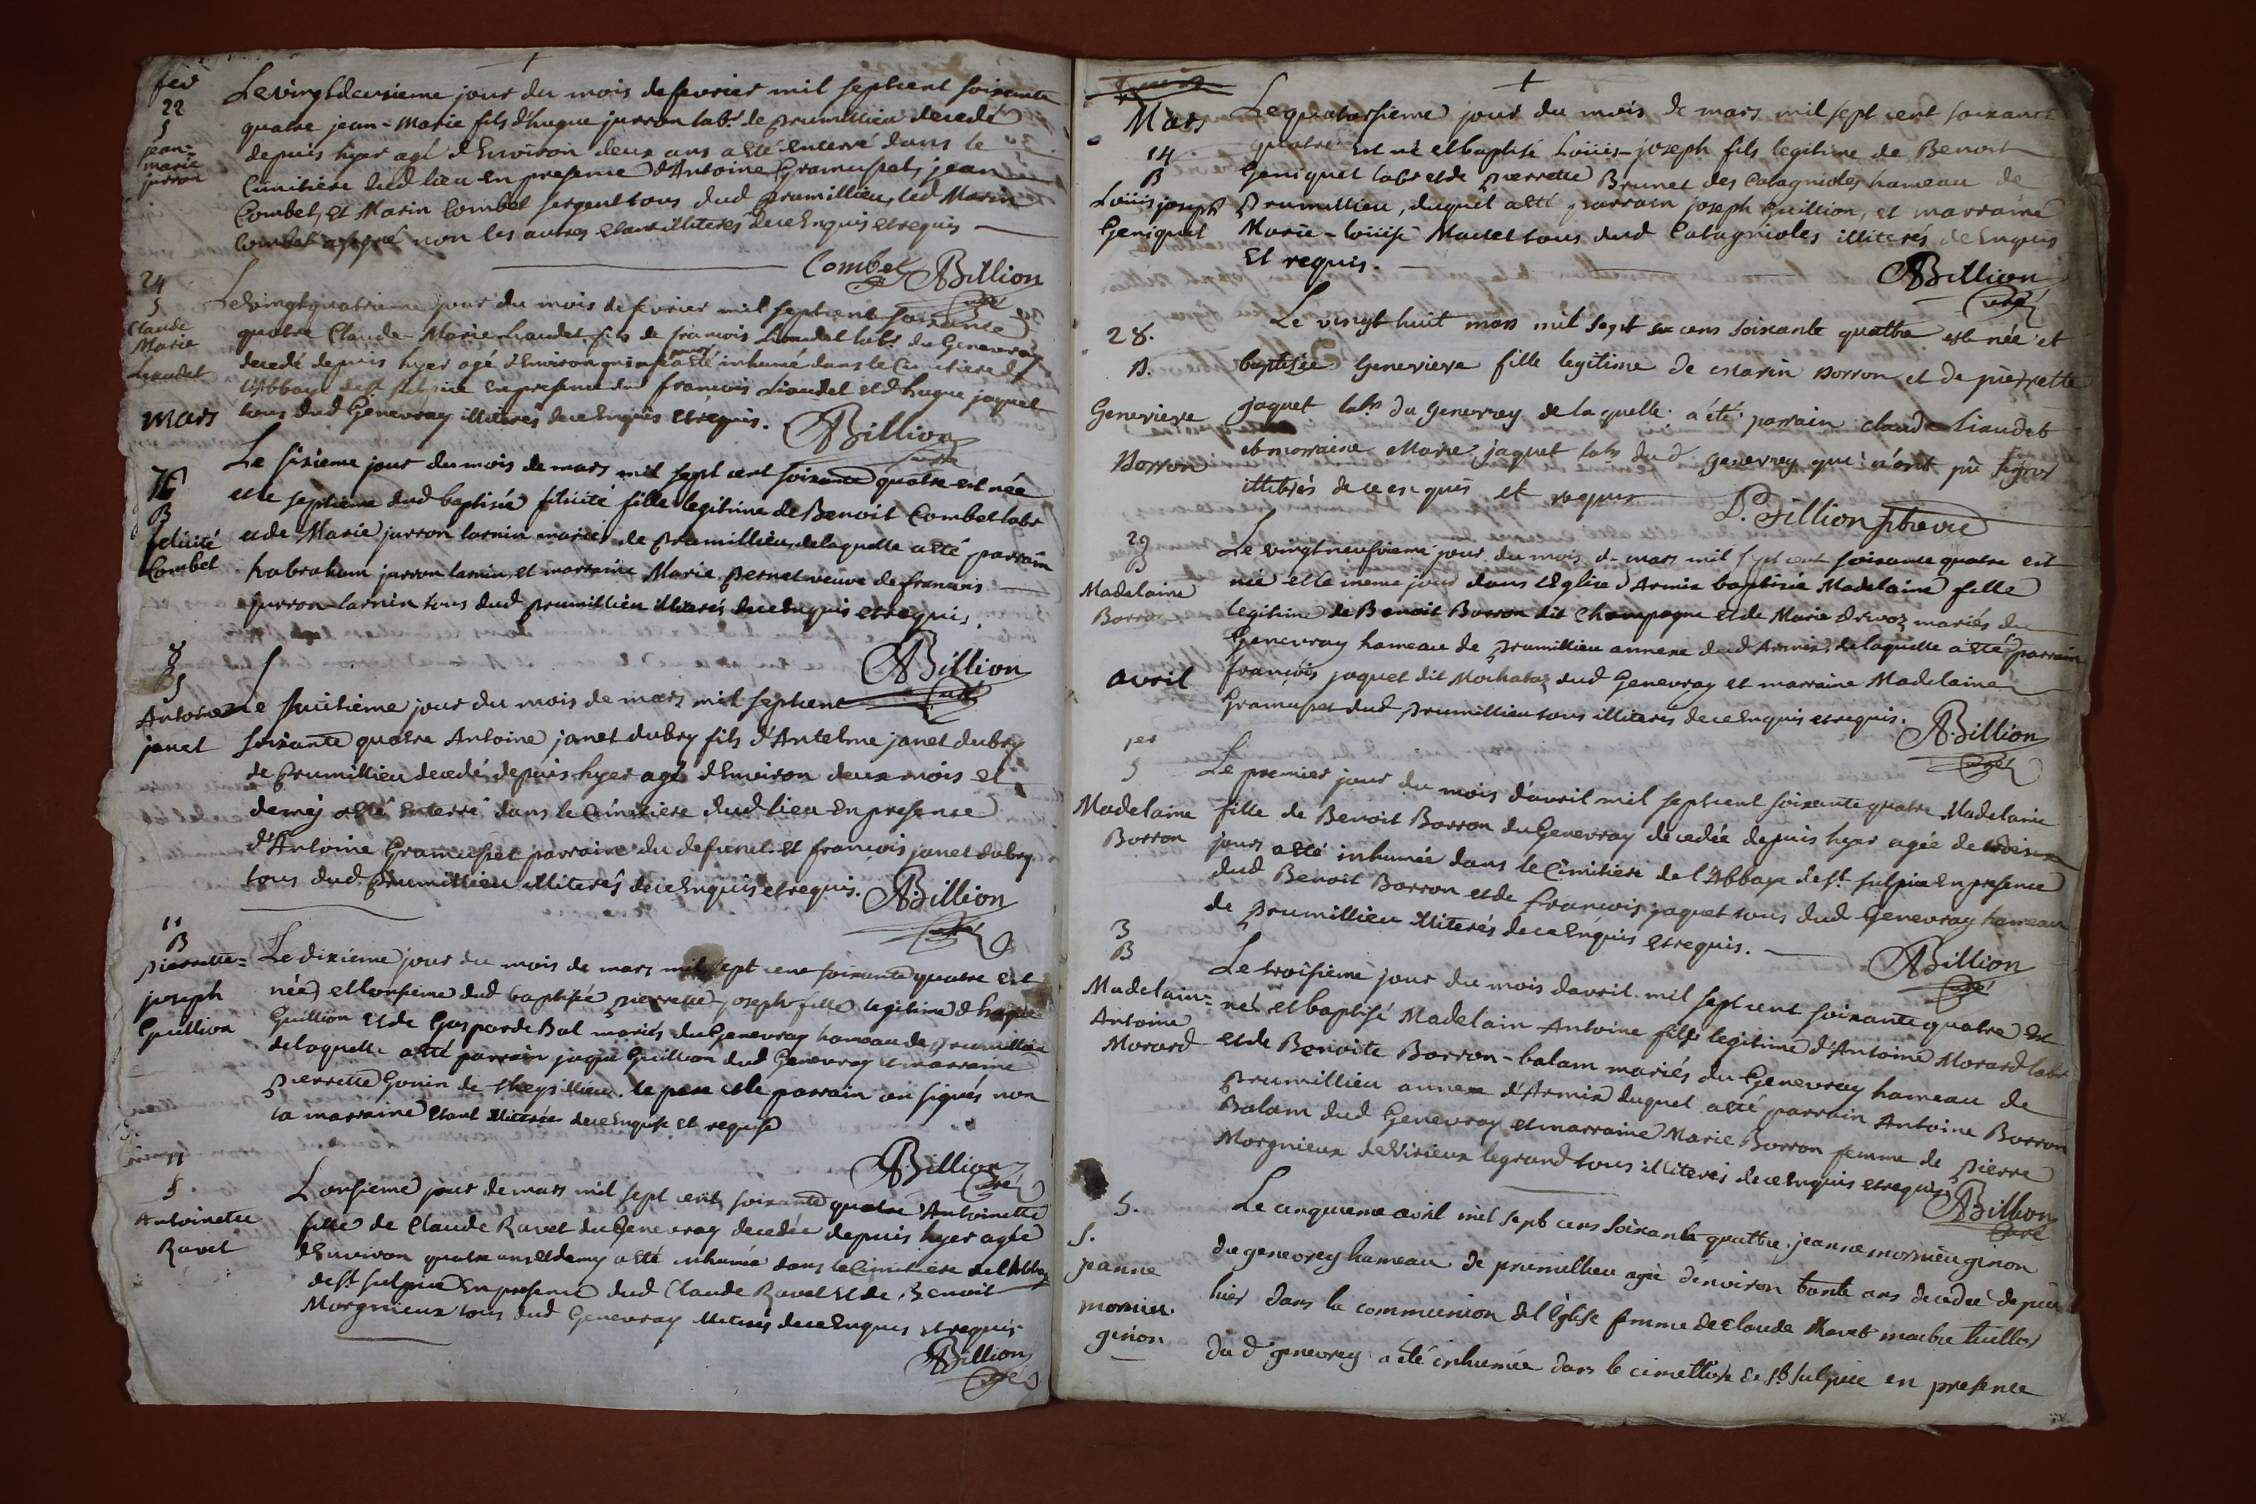 fev
22
S
jean-
marie
jurron
Le vingt deusieme jour du mois de fevrier mil septcent soixante
quatre jean-Marie fils d'hugue jurron labr. de prumillieu decedé
depuis hyer agé d'Environ deux ans a eté enterré dans le
Cimitiere dud lieu en presence d'Antoine Gramuset, jean
Combet, et Marin Combet sergent tous dud prumillieu, led Marin
Combet a signé non les autres etant illiterés de ce Enquis et requis
Combet ABillion
curé
24
S
Claude
Marie
Liaudet
Le vingt quatrieme jour du mois de fevrier mil septcent soixante
quatre Claude-Marie Liaudet fils de francois Liaudet labr. du Genevray
decedé depuis hyer agé d'Environ quinse jours a eté inhumé dans le Cimitiere de
l'Abbaye de st sulpice en presence dud francois Liaudet et d'hugue jaquet
tous dud Genevray illiterés de ce Enquis et requis.
ABillion
curé
Mars
7
B
felicité
Combet
Le sixieme jour du mois de mars mil sept cent soixante quatre est née
et le septieme dud baptisée felicité fille legitime de Benoit Combet labr
et de Marie jurron larnin mariés de prumillieu, de laquelle a eté parrain
habraham jurron larnin, et marraine Marie pernet veuve de francois
jurron-larnin tous dud prumillieu illiterés de ce Enquis et requis.
ABillion
curé
8
S
Antoine
janet
Le huitième jour du mois de mars mil septcent
soixante quatre Antoine janet dubry fils d'Antelme janet dubry
de prumillieu decedé depuis hyer agé d'Environ deux mois et
demÿ a eté enterré dans le Cimitiere dud lieu en presence
d'Antoine Gramuset parrain du defunct et francois janet dubry
tous dud prumillieu illiterés de ce Enquis et requis.
ABillion
curé
11
B
pierrette=
joseph
Guillion
Le dixieme jour du mois de mars mil sept cent soixante quatre est
née et l'onsieme dud baptisée pierrette-joseph fille legitime d'hugue
Guillion et de Gasparde Bal mariés du Genevray hameau de prumillieu
de laquelle a eté parrain jaque Guillion dud Genevray et marraine
pierrette Gonin de Cheysillieu. le pere et le parrain on signés non
la marraine etant illiterée de ce Enquise et requise
ABillion
curé
11
S
Antoinette
Ravet
L'onsieme jour de mars mil sept cent soixante quatre Antoinette
fille de Claude Ravet du Genevray decedée depuis hyer agée
d'Environ quatre ans et demy a eté inhumée dans le Cimitiere de l'Abbaye
de st sulpice en presence dud Claude Ravet et de Benoit
Morgnieux tous dud Genevray illiterés de ce Enquis et requis
ABillion
curé
Mars
14
B
Loüis joseph
Geniquet
Le quatorsieme jour du mois de mars mil sept cent soixante
quatre est né et baptisé Loüis-joseph fils legitime de Benoit
Geniquet labr et de pierrette Brunet des Catagnioles hameau de
prumillieu, duquel a eté parrain joseph Guillion, et marraine
Marie-loüise Mallet tous dud Catagnioles illiterés de Enquis
et requis.
ABillion
curé
28.
B.
Genevieve
Borron
Le vingt huit mars mil sept cens soixante quattre est née et
baptisée Genevieve fille legitime de marin Borron et de pierrette
jaquet labr du Genevrey de laquelle a été parrain claude Liaudet
et marraine Marie jaquet labr dud genevrey qui n'ont pû signer
illiterés de ce enquis et requis
P. Billion vicaire
29
B
Madelaine
Borron
Le vingt neufvieme jour du mois de mars mil sept cent soixante quatre est
née et le meme jour dans l'Eglise d'Armix baptisée Madelaine fille
legitime de Benoit Borron dit Champagne et de Marie drevoz mariés du
Genevray hameau de prumillieu annexe dud Armix, de laquelle a eté parrain
françois jaquet dit Mochataz dud Genevray et marraine Madelaine
Gramuset dud prumillieu tous illiterés de ce Enquis et requis.
ABillion
curé
avril
1er
S
Madelaine
Borron
Le premier jour du mois d'avril mil septcent soixante quatre Madelaine
fille de Benoit Borron du Genevray decedée depuis hyer agée de
jours a eté inhumée dans le Cimitiere de l'Abbaye de st sulpice en presence
dud Benoit Borron et de françois jaquet tous dud Genevray hameau
de prumillieu illiterés de ce Enquis et requis.
ABillion
curé
3
B
Madelain=
Antoine
Morard
Le troisieme jour du mois davril mil sept cent soixante quatre est
né et baptisé Madelain-Antoine fils legitime d'Antoine Morard labr
et de Benoite Borron-balam mariés du Genevray hameau de
prumillieu annexe d'Armix duquel a eté parrain Antoine Borron
Balam dud Genevray et marraine Marie Borron femme de pierre
Morgnieux de Virieux le grand tous illiterés de ce Enquis et requis
ABillion
curé
5.
S.
jeanne
mornieu.
ginon
Le cinquieme avril mil sept cens soixante quattre jeanne mornieu ginon
du genevrey hameau de prumillieu agée d'environ trente ans decedée depuis
hier dans la communion de l'église femme de claude Mavet maitre tuillier
du d genevrey a été inhumée dans le cimettiere de st sulpice en presence